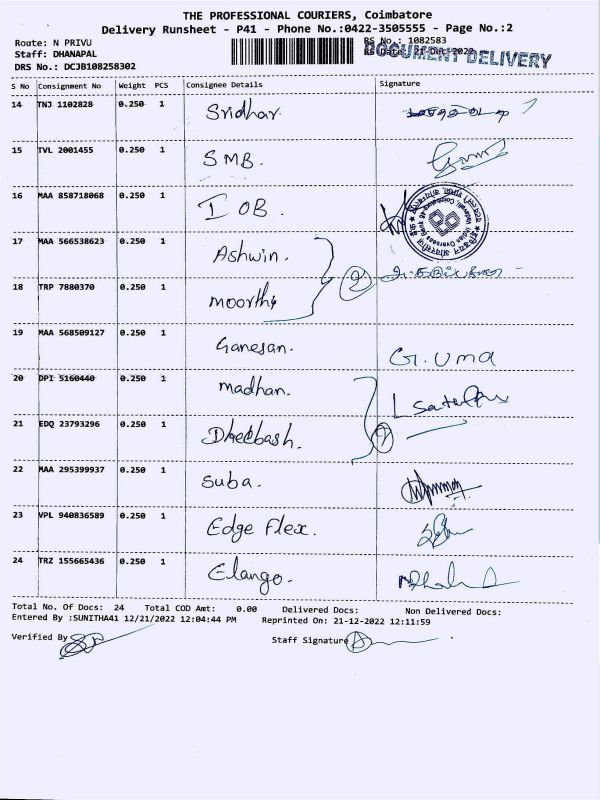 THE PROFESSIONAL COURIERS, Coimbatore
Delivery Runsheet - P41 - Phone No.:0422-3505555 - Page No.:2
Route: N PRIVU
RS No.: 1082583
Staff: DHANAPAL
RS Date: 21-Dec-2022
DOCUMENT DELIVERY
DRS No.: DCJB108258302
S No Consignment No Weight PCS Consignee Details Signature
14 TNJ 1102828 0.250 1 Sridhar.
15 TVL 2001455 0.250 1 SMB.
16 MAA 858718068 0.250 1 IOB.
Indian Overseas Bank
17 MAA 566538623 0.250 1 Ashwin.
2
18 TRP 7880370 0.250 1 Moorthy
19 MAA 568509127 0.250 1 Ganesan. G. Uma
20 DPI 5160440 0.250 1 madhan.
21 EDQ 23793296 0.250 1
22 MAA 295399937 0.250 1 Suba.
23 VPL 940836589 0.250 1 Edge Flex.
24 TRZ 155665436 0.250 1 Elango.
Total No. Of Docs: 24 Total COD Amt: 0.00 Delivered Docs: Non Delivered Docs:
Entered By :SUNITHA41 12/21/2022 12:04:44 PM Reprinted On: 21-12-2022 12:11:59
Verified By
Staff Signature